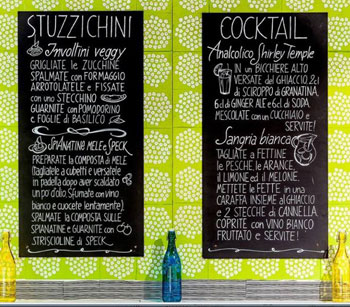 STUZZICHINI
Involtini veggy
GRIGLIATE le ZUCCHINE
SPALMATE con FORMAGGIO
ARROTOLATELE e FISSATE
con uno STECCHINO
GUARNITE con POMODORINO
e FOGLIE di BASILICO
SPIANATINE MELE e SPECK
PREPARATE la COMPOSTA di MELE
(tagliatele a cubetti e versatele
in padella dopo aver scaldato
un po' d'olio. Sfumate con vino
bianco e cuocete lentamente).
SPALMATE la COMPOSTA sulle
SPIANATINE e GUARNITE con
STRISCIOLINE di SPECK
COCKTAIL
Analcolico Shirley Temple
IN un BICCHIERE ALTO
VERSATE del GHIACCIO, 2cl
di SCIROPPO di GRANATINA,
6cl di GINGER ALE e 6cl di SODA.
MESCOLATE con un CUCCHIAIO e
SERVITE!
Sangria bianca
TAGLIATE a FETTINE
le PESCHE, le ARANCE,
il LIMONE ed il MELONE.
METTETE le FETTE in una
CARAFFA INSIEME al GHIACCIO
e 2 STECCHE di CANNELLA.
COPRITE con VINO BIANCO
FRUTTATO e SERVITE!